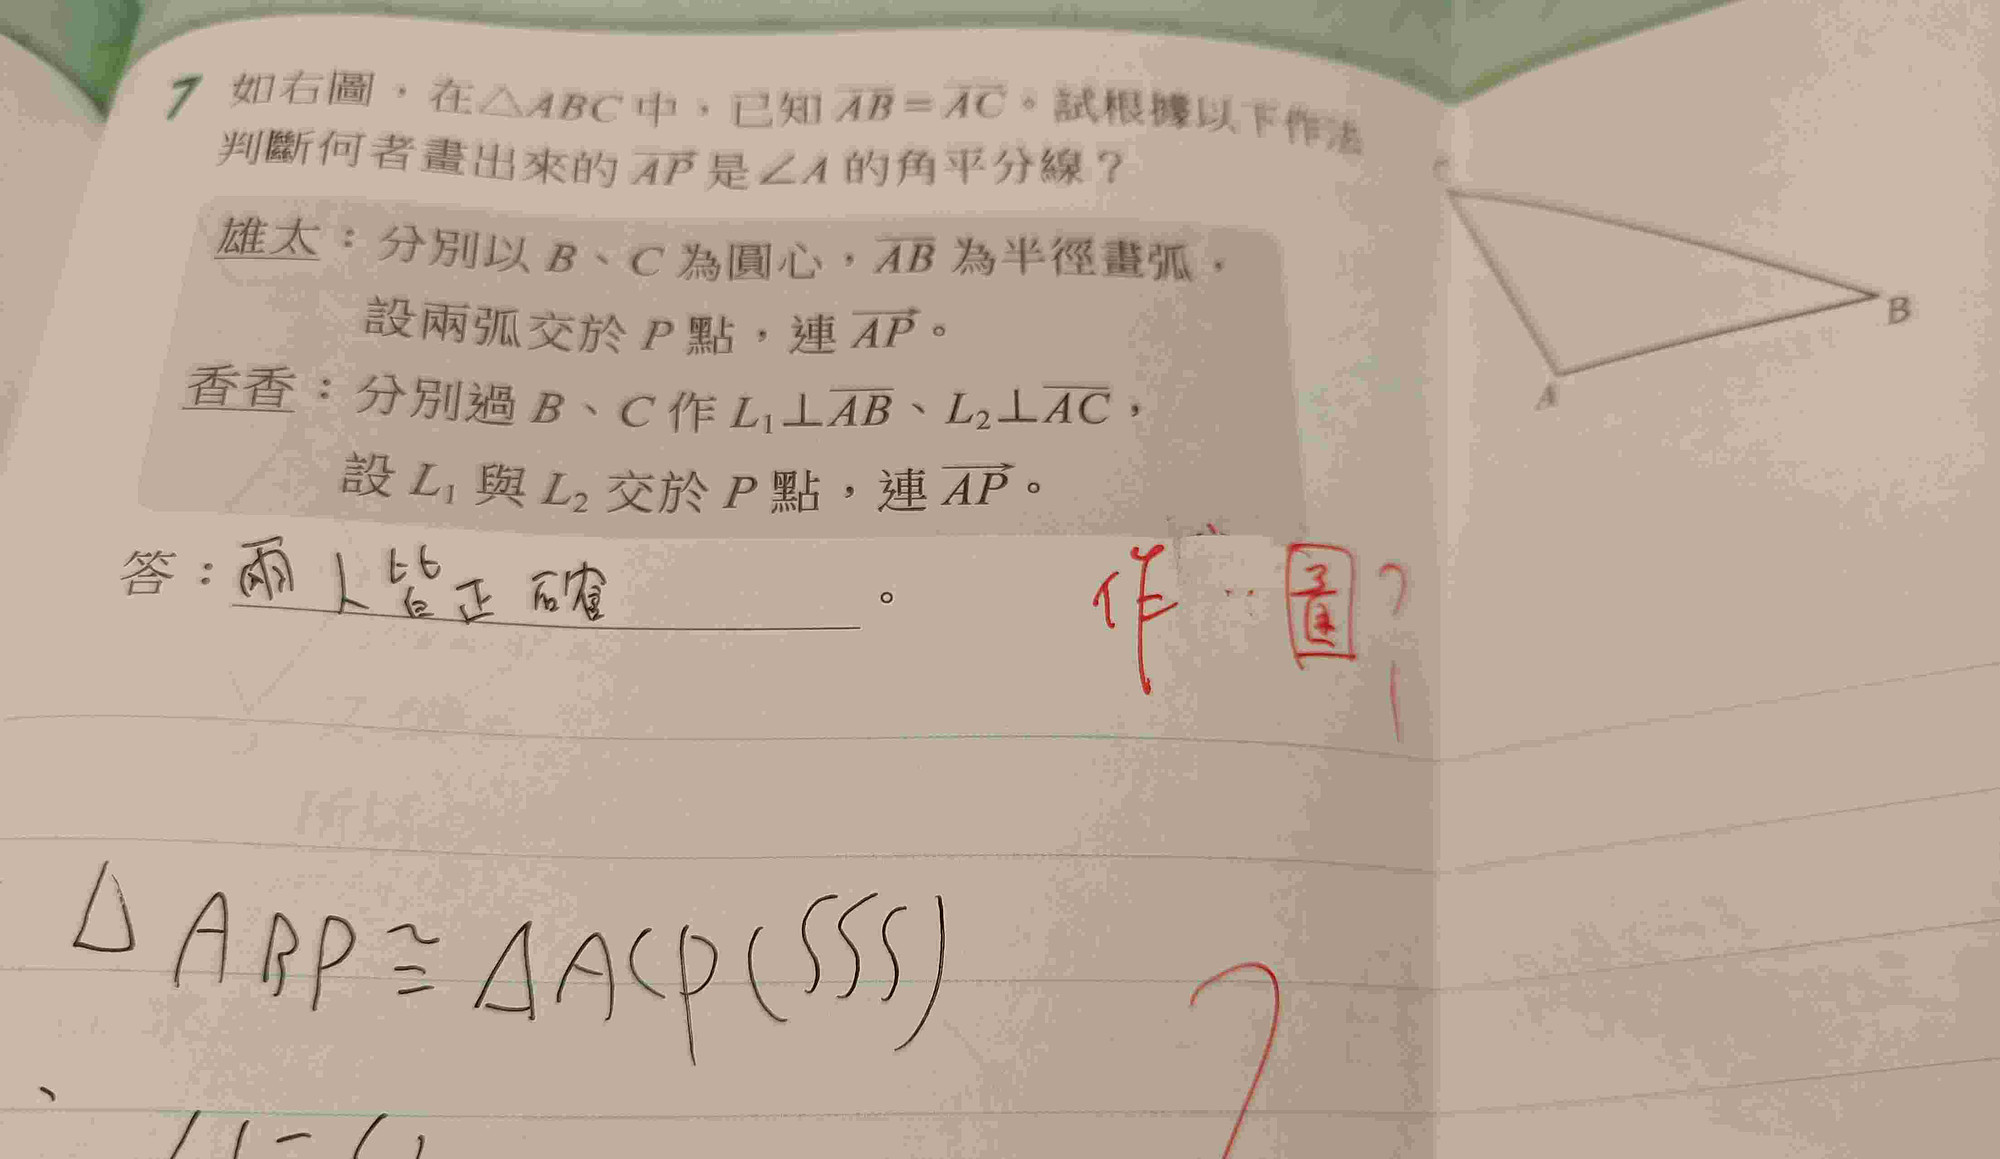 7 如右圖，在△ABC中，已知AB=AC。試根據以下作法
判斷何者畫出來的AP是∠A的角平分線？
C
雄太：分別以B、C為圓心，AB為半徑畫弧，
設兩弧交於P點，連AP。
B
香香：分別過B、C作L₁⊥AB、L₂⊥AC，
A
設L₁與L₂交於P點，連AP。
答：兩人皆正確。
作圖?
△ABP≅△ACP(SSS)